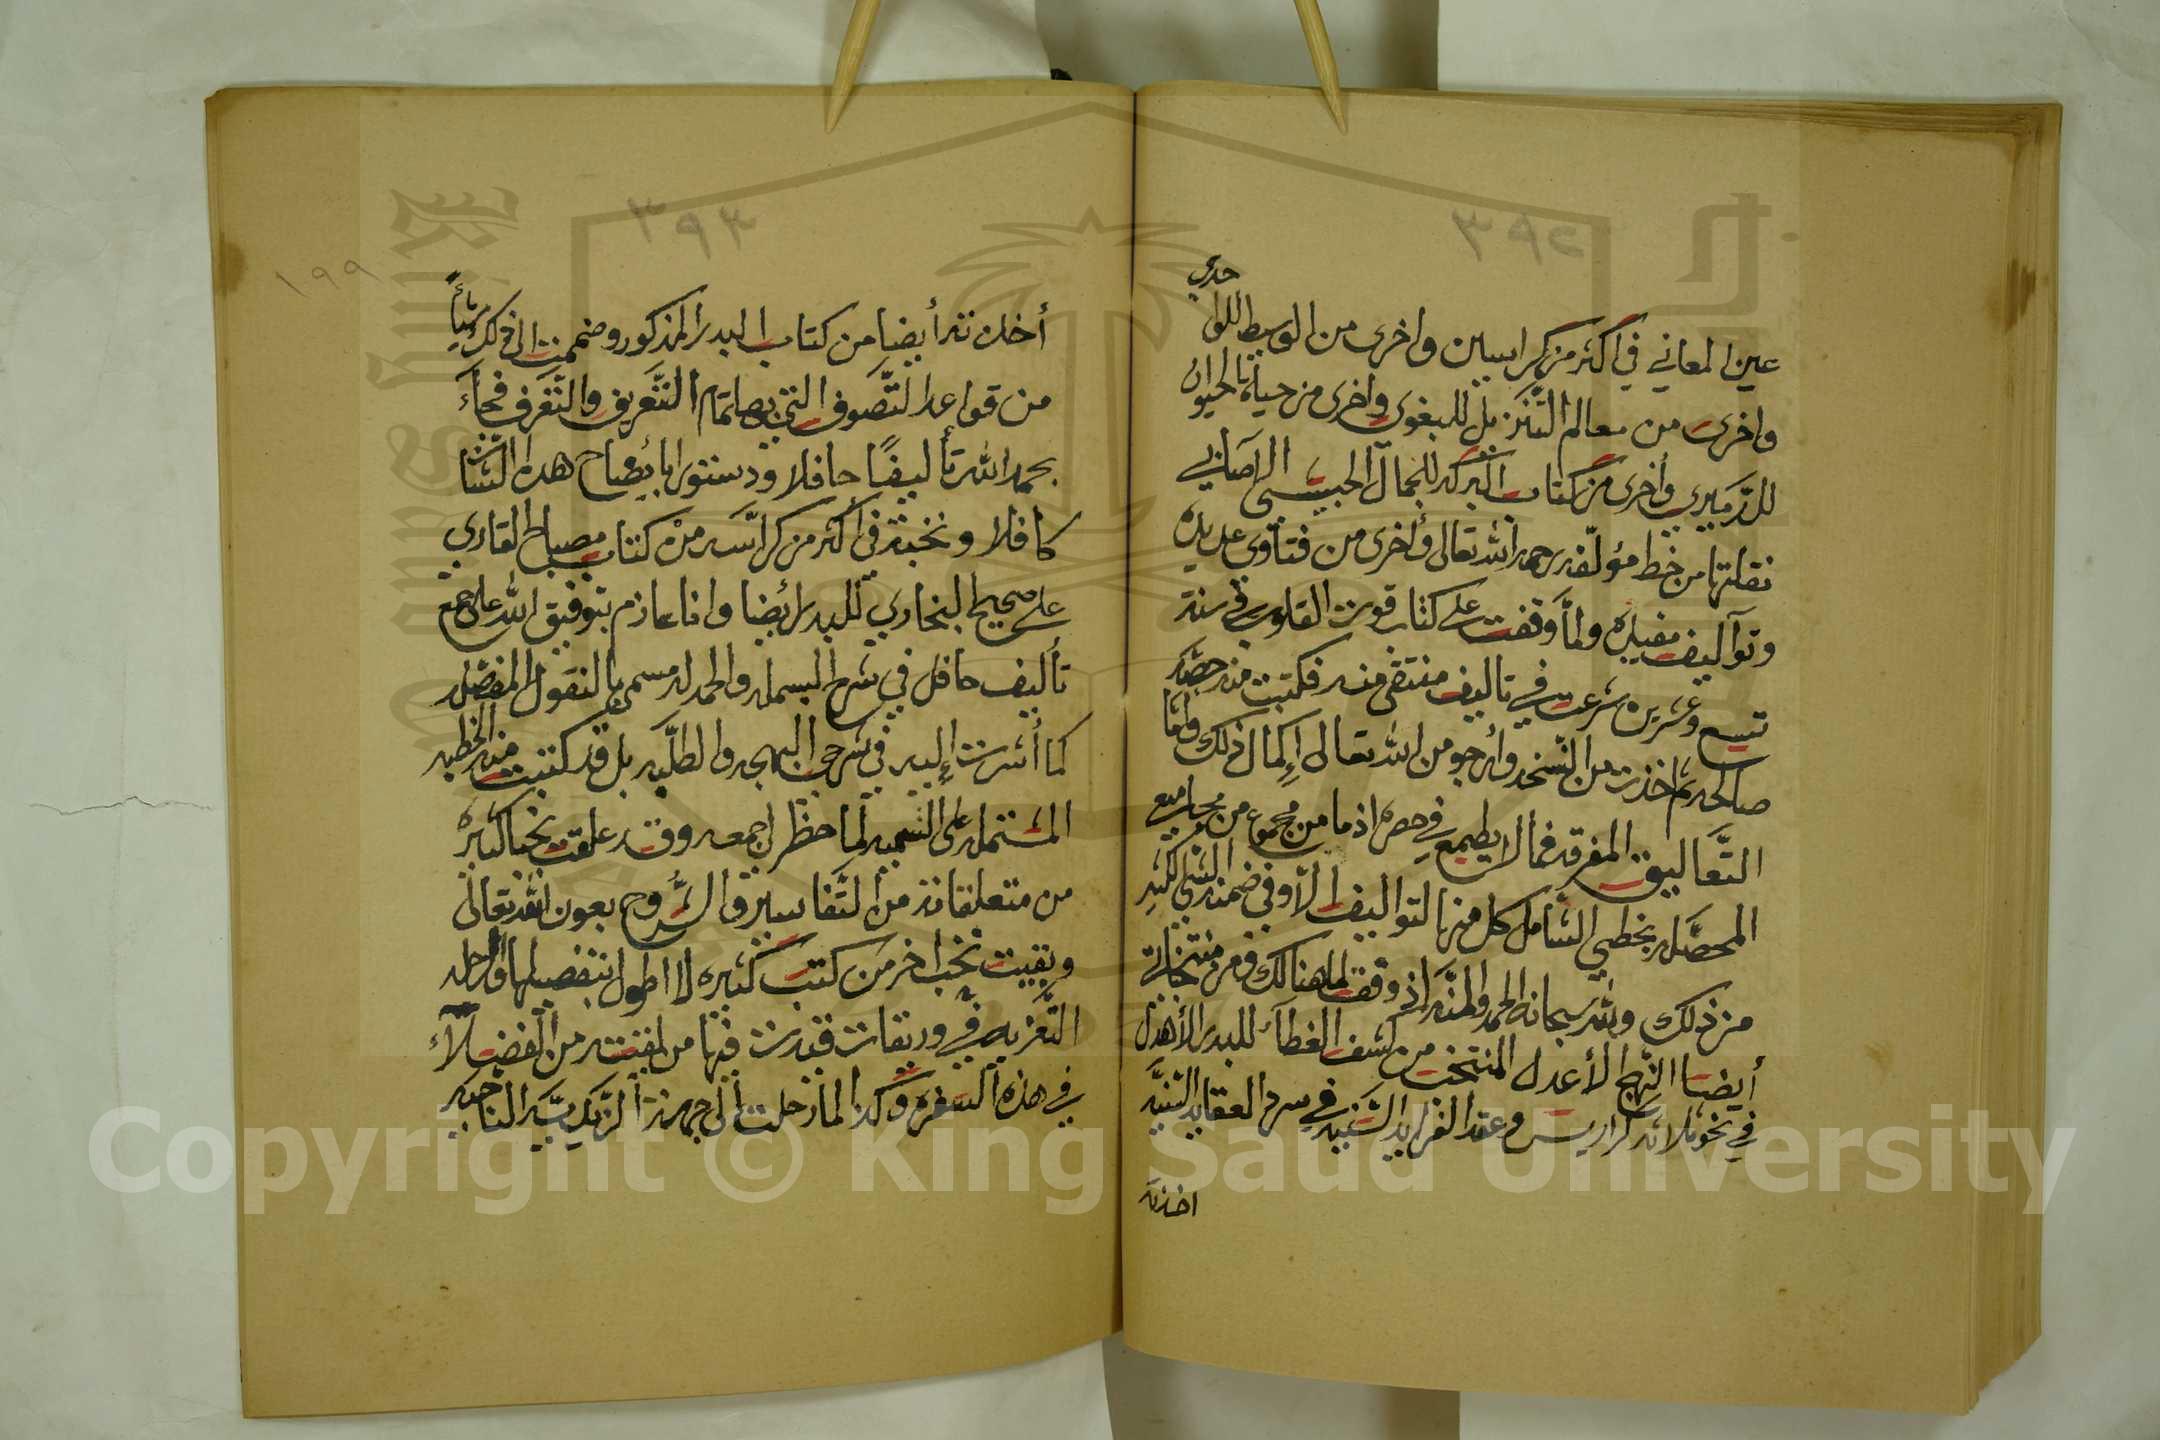 ٣٩٢
عين المعاني في أكثر من كراسين واخرى من الوسيط للواحدي
واخرى من معالم التنزيل للبغوى واخرى من حياة الحيوان
للدميري وأخرى من كتاب البركة للجمال الحبيشي الاصابي
نقلتها من خط مؤلفه رحمه الله تعالى وأخرى من فتاوى عديده
وتوآليف مفيده ولما وقفت على كتاب قوت القلوب في سنة
تسع وعشرين شرعت في تاليف منتقى منه فكتبت منه حصّه
صالحه ثم اخذت من النسخه وأرجو من الله تعالى إكمال ذلك وامّا
التَّعاليق المفرقه فمالا يطمع في حصره اذ ما من مجموع من مجاميع
المحصَّله بخطي الشامل كل منها لتواليف الا وفي ضمنه الشي الكثير
من ذلك ولله سبحانه الحمد والمنّه اذ وفق لما هنالك ومن منتخباتي
أيضا النّهج الأعدل المنتخب من كشف الغطآء للبدر الأهدل
في نحو ثلاثه كراريس وعقد الفرايد السَّنيه في سرد العقايد السنيَّه
اخذته
٣٩٣
١٩٩
أخذته أيضا من كتاب البدر المذكور وضممت الى ذلك شيأً
من قواعد التَّصوف التي بها تمام التَّعريف والتّعرف فجآء
بحمد الله تأليفًا حافلا ودستورا بايضاح هذا الشّان
كافلا ونخبة في أكثر من كرّاسه من كتاب مصباح القاري
على صحيح البخاري للبدر ايضا وانا عازم بتوفيق الله على جمع
تأليف حافل في شرح البسمله والحمدله مسمى بالنقول المفضله
كما أشرت إليه في شرحي البهجه والطلّبه بل قد كتبت منه الخطبه
المشتمله على التسميه لما حظر اجمعه وقد علقت نخبا كثيره
من متعلقاته من التَّفاسير والشُّروح بعون الله تعالى
وبقيت نخب اخر من كتب كثيره لا اطول بتفصيلها والرحله
التَّعزيه في وريقات قيدت فيها من لقيته من الفضلآء
في هذه السفره وكذا لما رحلت الى جهة الزيديَّه الناحيه